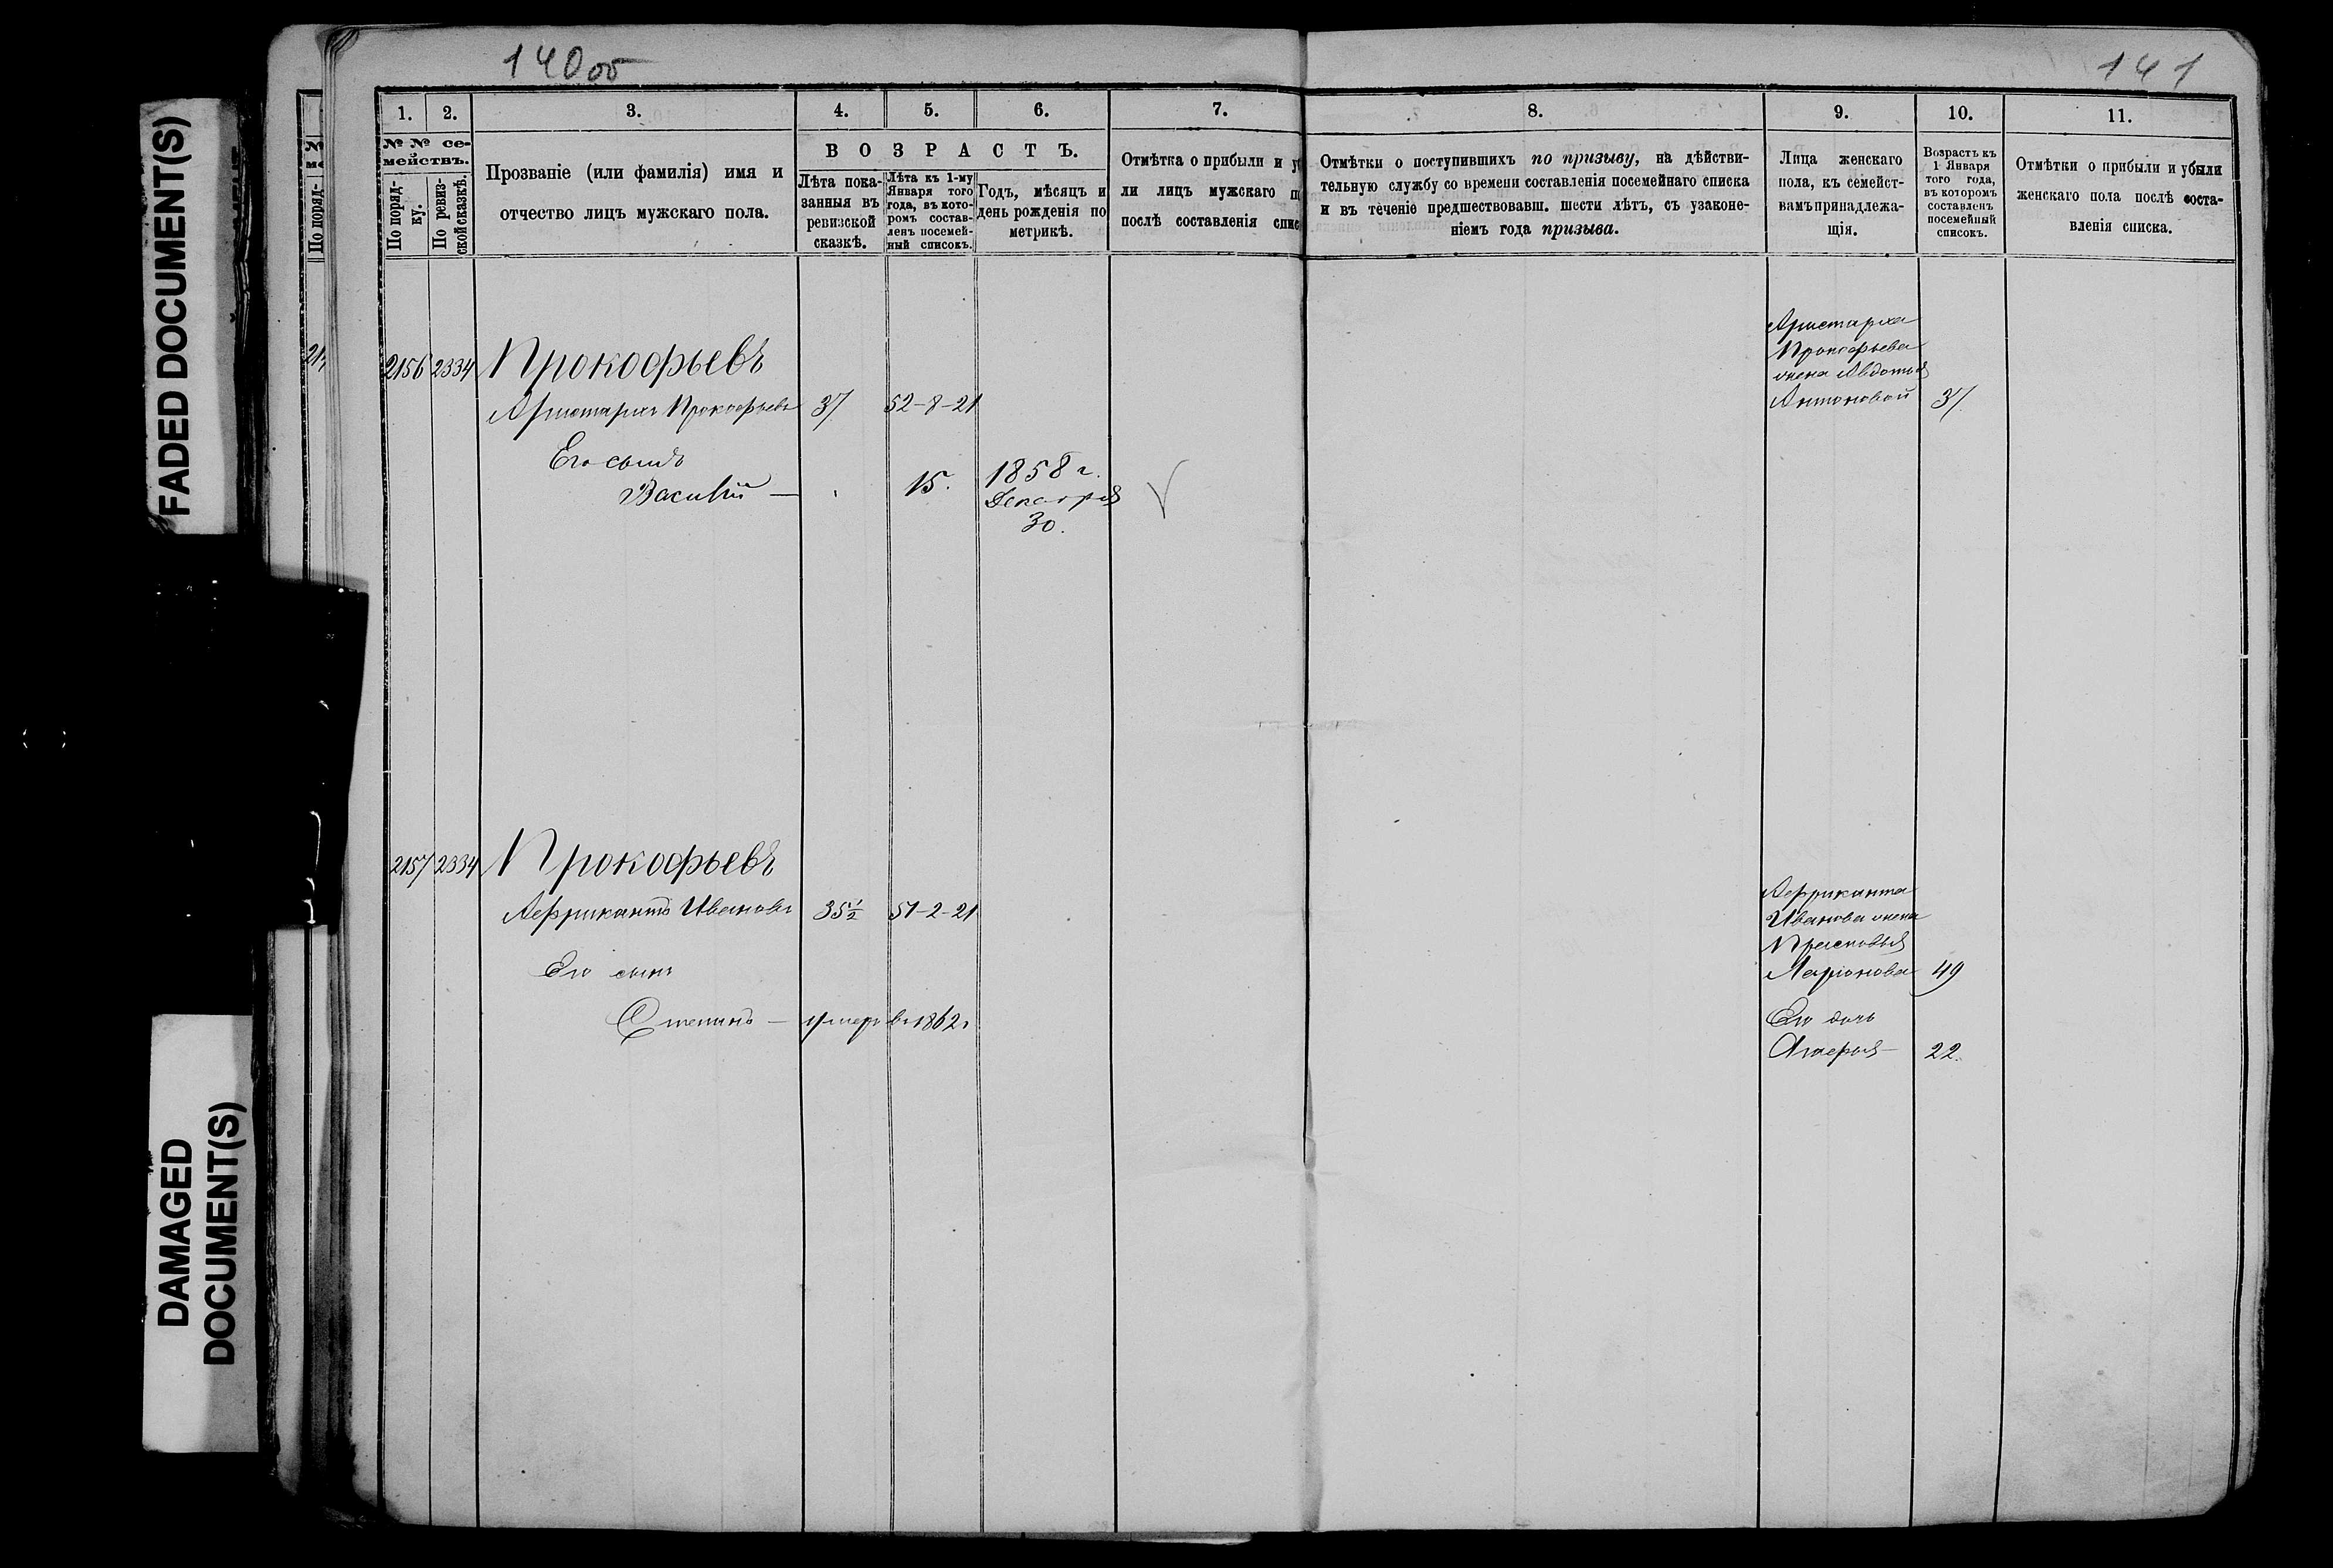 140об
141
FADED DOCUMENT(S)
DAMAGED
DOCUMENT(S)
1. 2. 3. 4. 5. 6. 7. 8. 9. 10. 11.
№ № се-
мействъ.
По поряд-
ку.
По ревиз-
ской сказкѣ.
Прозваніе (или фамилія) имя и
отчество лицъ мужскаго пола.
ВОЗРАСТЪ.
Лѣта пока-
занныя въ
ревизской
сказкѣ.
Лѣта къ 1-му
Января того
года, въ кото-
ромъ состав-
ленъ посемей-
ный списокъ.
Годъ, мѣсяцъ и
день рожденія по
метрикѣ.
Отмѣтка о прибыли и у
ли лицъ мужскаго п
послѣ составленія спис
Отмѣтки о поступившихъ по призыву, на дѣйстви-
тельную службу со времени составленія посемейнаго списка
и въ теченіе предшествовавш. шести лѣтъ, съ узаконе-
ніемъ года призыва.
Лица женскаго
пола, къ семейст-
вамъ принадлежа-
щія.
Возрастъ къ
1 Января
того года,
въ которомъ
составленъ
посемейный
списокъ.
Отмѣтки о прибыли и убыли
женскаго пола послѣ соста-
вленія списка.
По поряд-
2156 2334 Прокофьевъ
Аристархъ Прокофьевъ 37 52-8-21
Его сынъ
Василій — 15. 1858 г.
Декабря
30.
Аристарха
Прокофьева
жена Авдотья
Антоновой 37
2157 2334 Прокофьевъ
Аффрикантъ Ивановъ 35½ 51-2-21
Его сынъ
Степанъ — умеръ въ 1862г
Аффриканта
Иванова жена
Прасковья
Ларіонова 49
Его дочь
22.